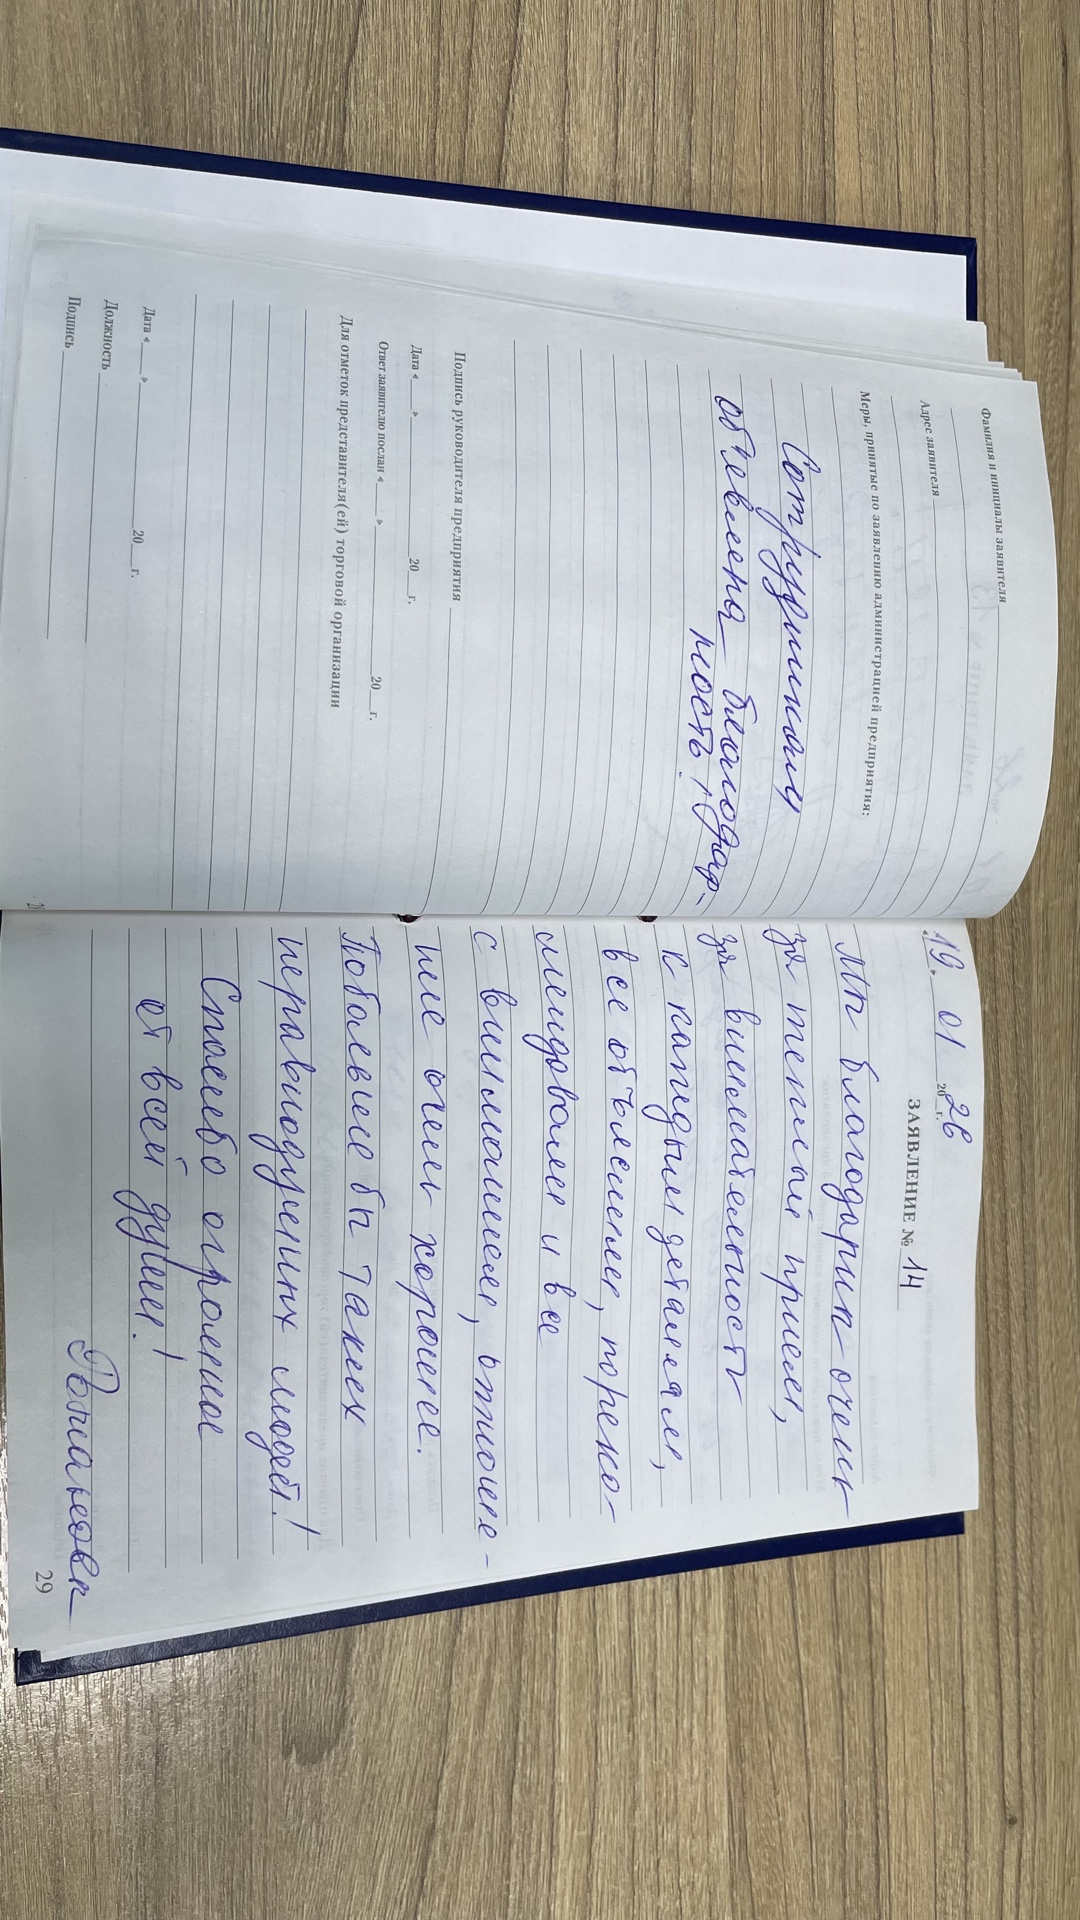 Фамилия и инициалы заявителя
Адрес заявителя
Меры, принятые по заявлению администрацией предприятия:
Сотрудникам
объевлена благодар-
ность!
Подпись руководителя предприятия
Дата « » 20 г.
Ответ заявителю послан « » 20 г.
Для отметок представителя(ей) торговой организации
Дата « » 20 г.
Должность
Подпись
19. 01 2026 г.
ЗАЯВЛЕНИЕ № 14
Мы благодарим очень
за теплый прием,
за внимательность
к каждым деталям,
все объяснили, пореко-
мендовали и все
с вниманием, отноше-
ние очень хорошее.
Побольше бы таких
неравнодушных людей!
Спасибо огромное
от всей души!
29